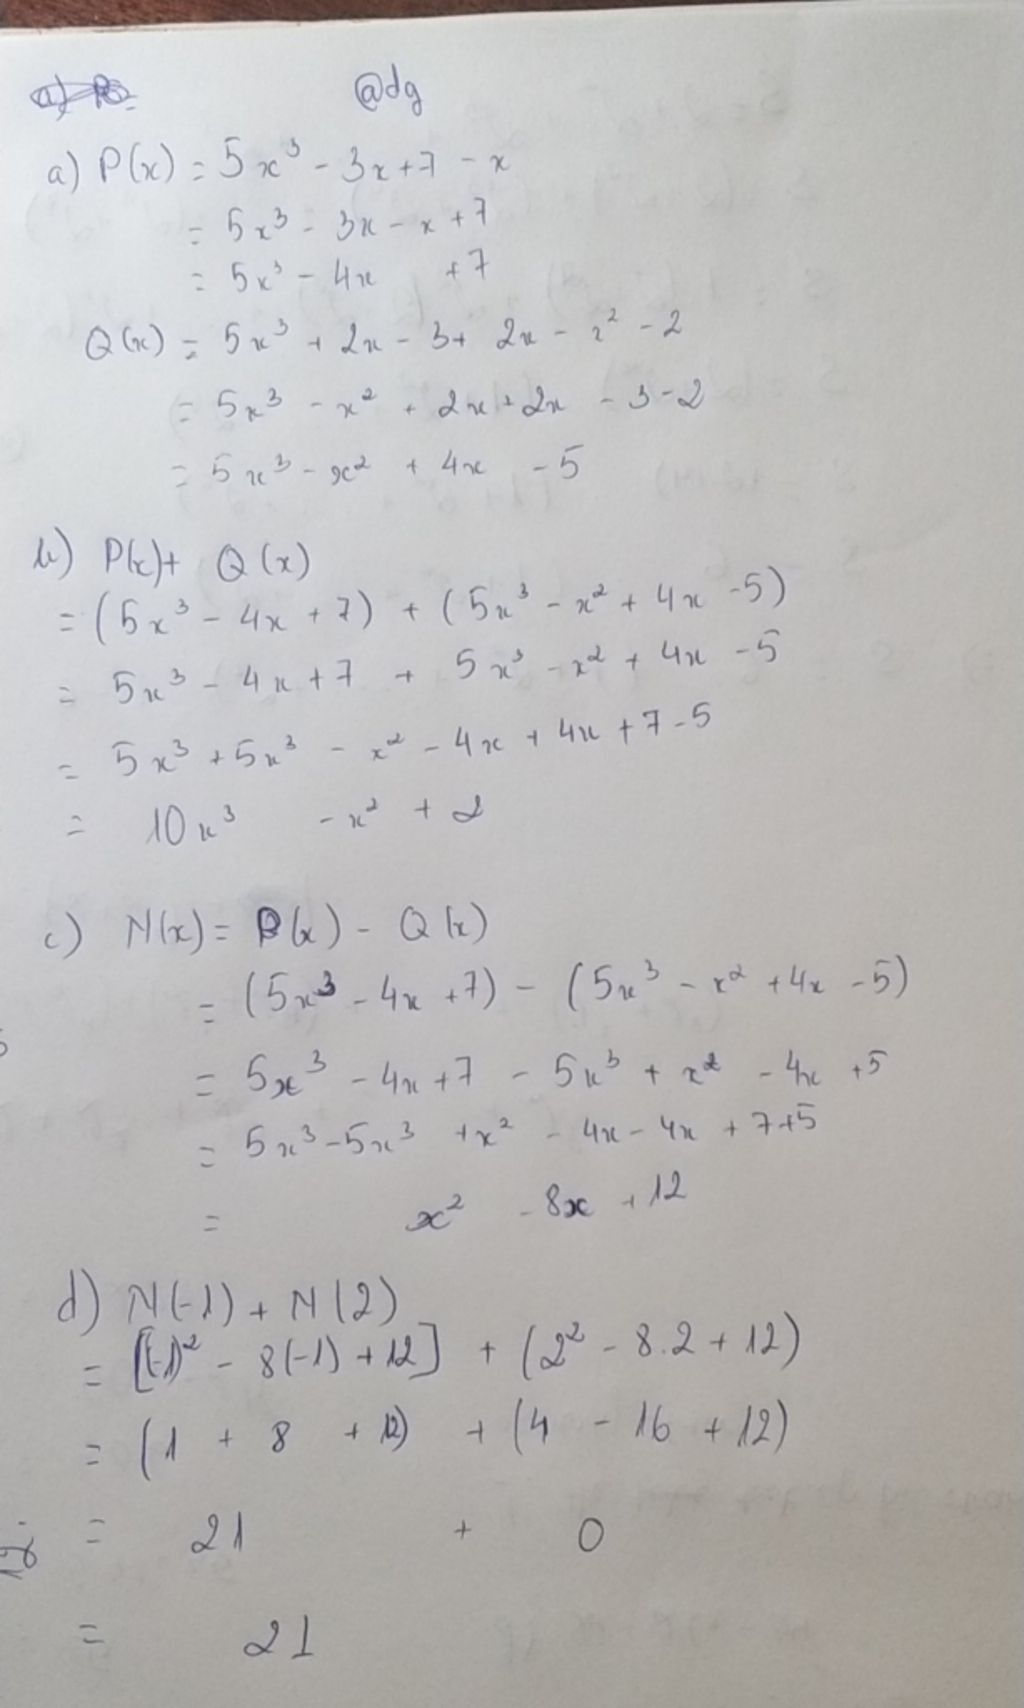 @dg
a) P(x) = 5x³ - 3x + 7 - x
= 5x³ - 3x - x + 7
= 5x³ - 4x + 7
Q(x) = 5x³ + 2x - 3 + 2x - x² - 2
= 5x³ - x² + 2x + 2x - 3 - 2
= 5x³ - x² + 4x - 5
b) P(x) + Q(x)
= (5x³ - 4x + 7) + (5x³ - x² + 4x - 5)
= 5x³ - 4x + 7 + 5x³ - x² + 4x - 5
= 5x³ + 5x³ - x² - 4x + 4x + 7 - 5
= 10x³ - x² + 2
c) N(x) = P(x) - Q(x)
= (5x³ - 4x + 7) - (5x³ - x² + 4x - 5)
= 5x³ - 4x + 7 - 5x³ + x² - 4x + 5
= 5x³ - 5x³ + x² - 4x - 4x + 7 + 5
= x² - 8x + 12
d) N(-1) + N(2)
= [(-1)² - 8(-1) + 12] + (2² - 8.2 + 12)
= (1 + 8 + 12) + (4 - 16 + 12)
= 21 + 0
= 21